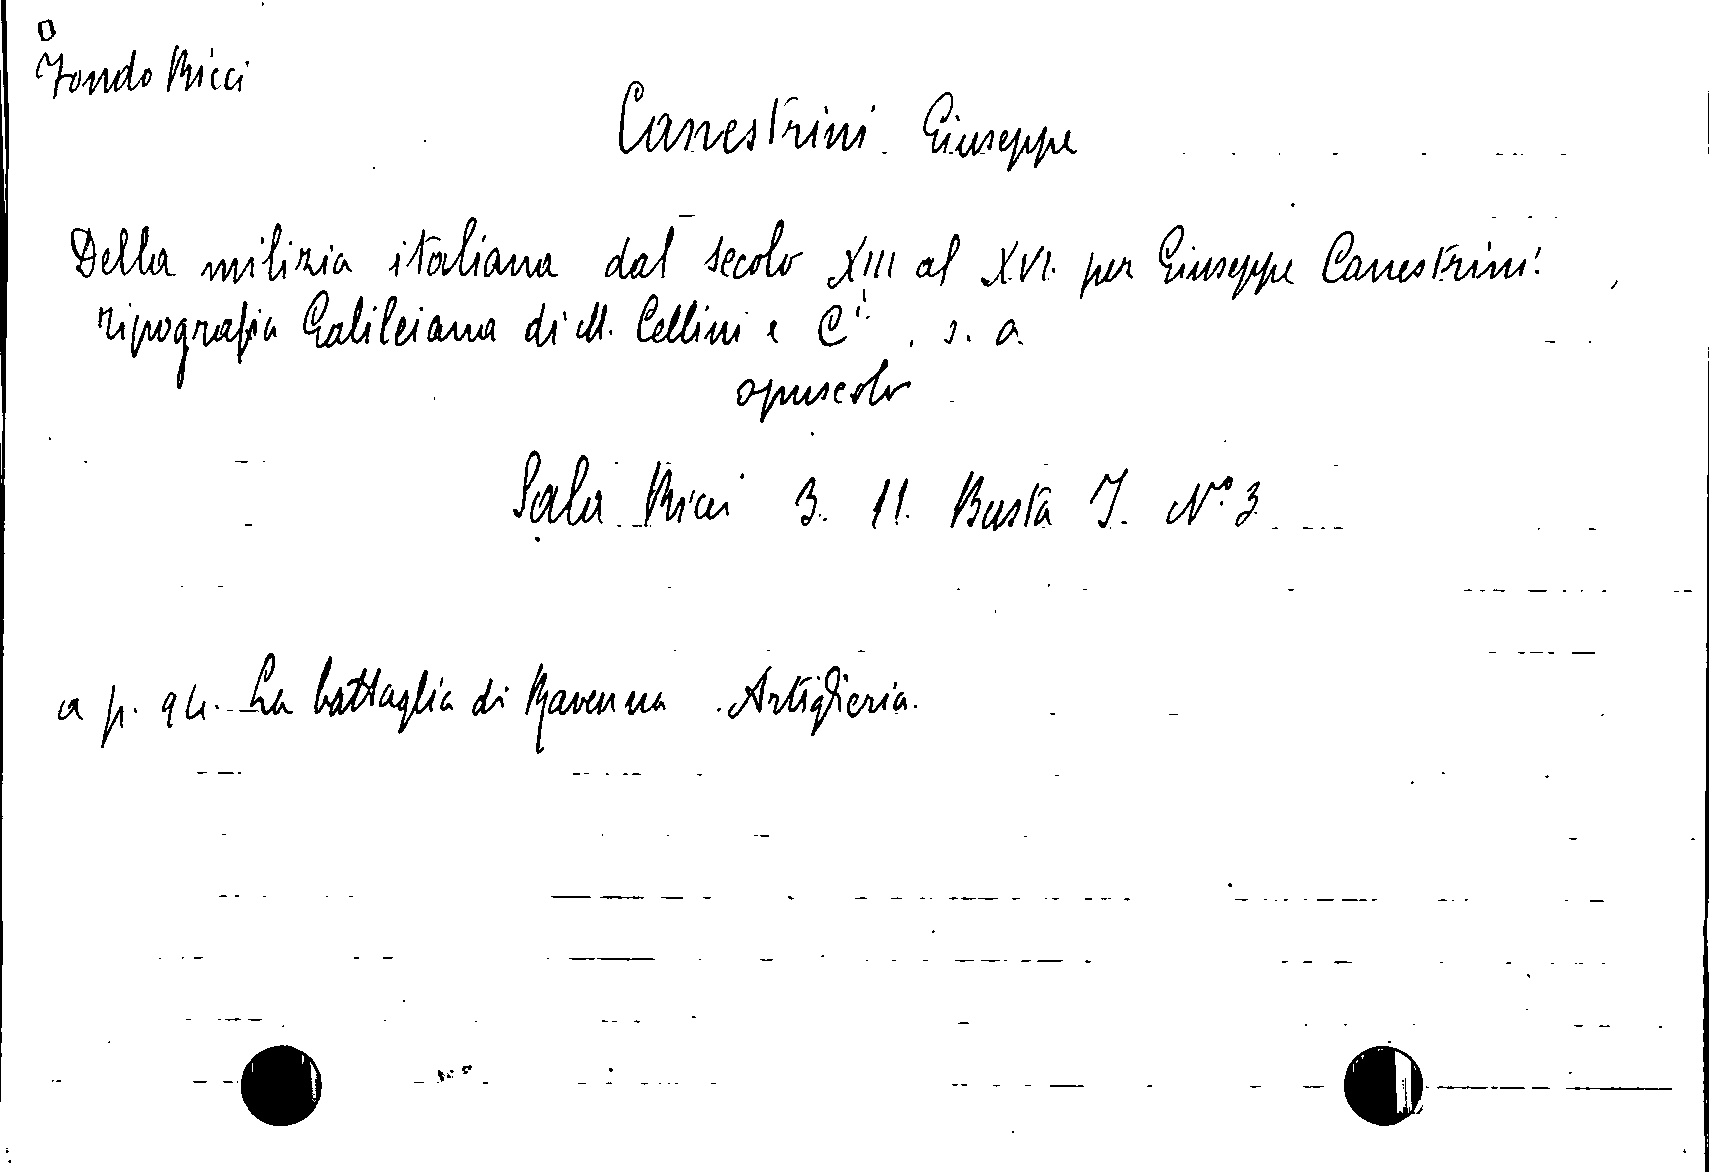 Fondo Ricci
Canestrini Giuseppe
Della milizia italiana dal secolo XIII al XVI. per Giuseppe Canestrini.
tipografia Galileiana di M. Cellini e Cⁱ. , s. a.
opuscolo
Sala Ricci 3. 11. Busta I. Nº 3
a p. 94. La battaglia di Ravenna. Artiglieria.